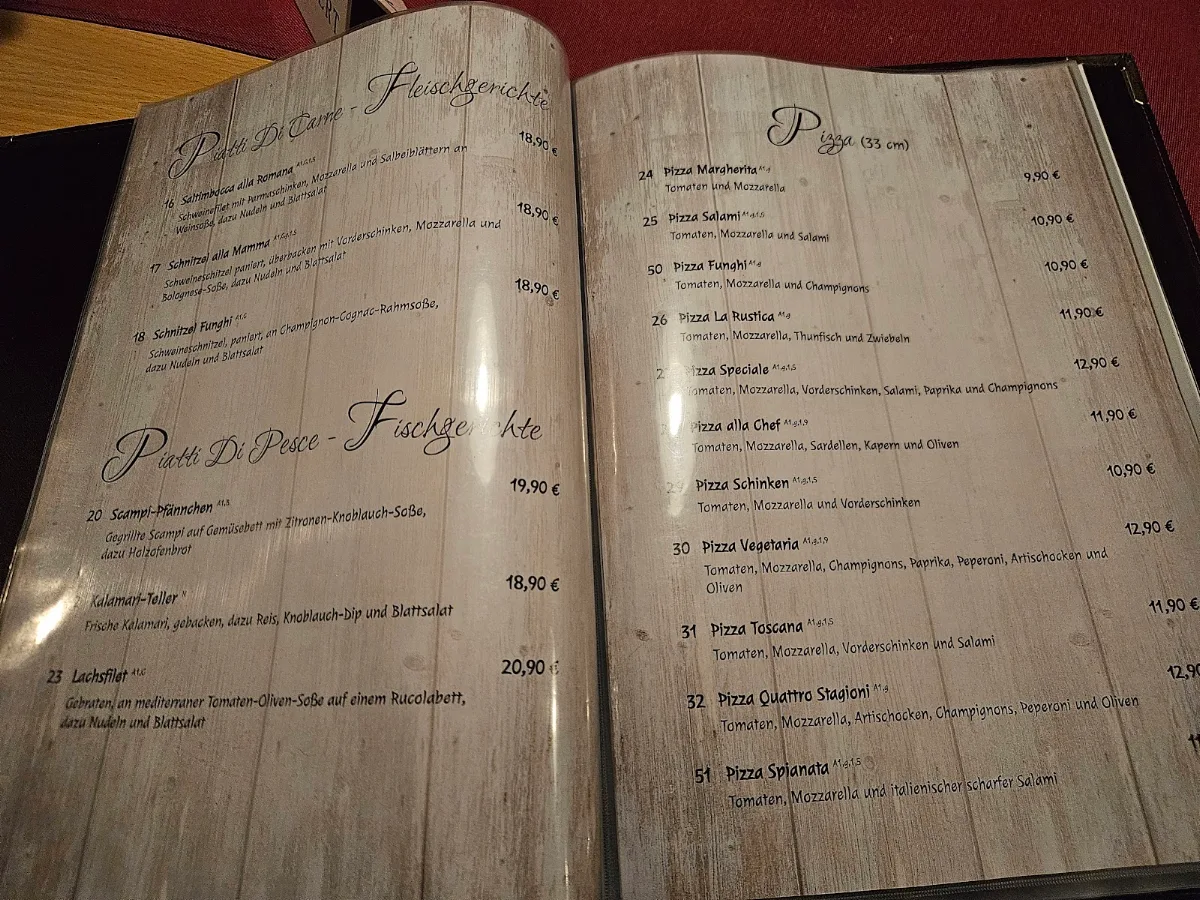 ERT
Piatti Di Carne - Fleischgerichte
16 Saltimbocca alla Romana 18,90 €
Schweinefilet mit Parmaschinken, Mozzarella und Salbeiblättern an
Weinsoße, dazu Nudeln und Blattsalat
17 Schnitzel alla Mamma 18,90 €
Schweineschitzel paniert, überbacken mit Vorderschinken, Mozzarella und
Bolognese-Soße, dazu Nudeln und Blattsalat
18 Schnitzel Funghi 18,90 €
Schweineschnitzel, paniert, an Champignon-Cognac-Rahmsoße,
dazu Nudeln und Blattsalat
Piatti Di Pesce - Fischgerichte
20 Scampi-Pfännchen 19,90 €
Gegrillte Scampi auf Gemüsebett mit Zitronen-Knoblauch-Soße,
dazu Holzofenbrot
Kalamari-Teller 18,90 €
Frische Kalamari, gebacken, dazu Reis, Knoblauch-Dip und Blattsalat
23 Lachsfilet 20,90 €
Gebraten, an mediterraner Tomaten-Oliven-Soße auf einem Rucolabett,
dazu Nudeln und Blattsalat
Pizza (33 cm)
24 Pizza Margherita 9,90 €
Tomaten und Mozzarella
25 Pizza Salami 10,90 €
Tomaten, Mozzarella und Salami
50 Pizza Funghi 10,90 €
Tomaten, Mozzarella und Champignons
26 Pizza La Rustica 11,90 €
Tomaten, Mozzarella, Thunfisch und Zwiebeln
Pizza Speciale A1,g,1,5 12,90 €
Tomaten, Mozzarella, Vorderschinken, Salami, Paprika und Champignons
Pizza alla Chef A1,g,1,9 11,90 €
Tomaten, Mozzarella, Sardellen, Kapern und Oliven
29 Pizza Schinken A1,g,1,5 10,90 €
Tomaten, Mozzarella und Vorderschinken
30 Pizza Vegetaria A1,g,1,9 12,90 €
Tomaten, Mozzarella, Champignons, Paprika, Peperoni, Artischocken und
Oliven
31 Pizza Toscana A1,g,1,5 11,90 €
Tomaten, Mozzarella, Vorderschinken und Salami
32 Pizza Quattro Stagioni A1,g 12,90
Tomaten, Mozzarella, Artischocken, Champignons, Peperoni und Oliven
51 Pizza Spianata A1,g,1,5
Tomaten, Mozzarella und italienischer scharfer Salami